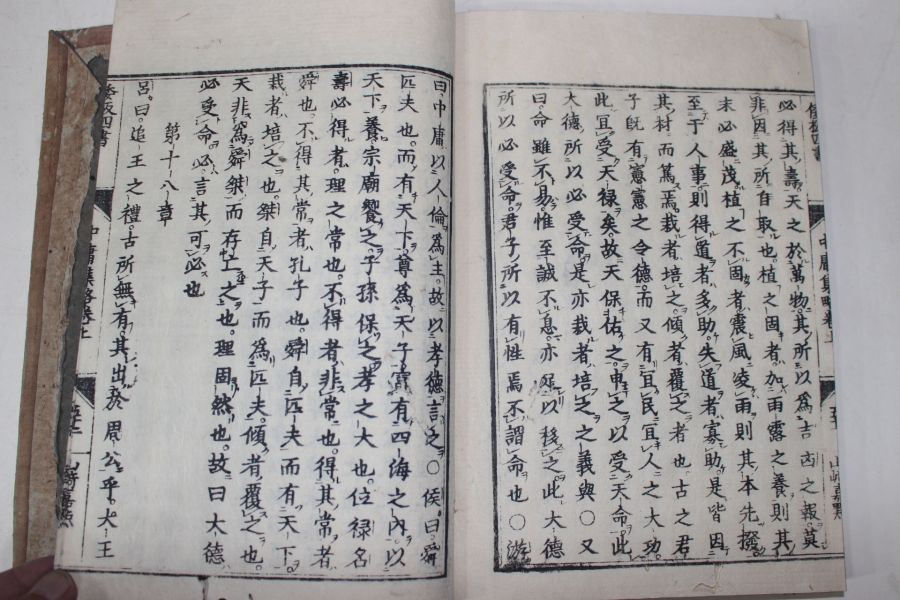 必得其壽。天之於萬物。其所以爲吉凶之報。莫
非因其所自取也。植之固者。加雨露之養。則其
末必盛茂。植之不固者。震風凌雨。則其本先撥。
至于人事。則得道者多助。失道者寡助。是皆因
其材而篤焉。栽者培之。傾者覆之者也。古之君
子旣有憲憲之令德。而又有宜民宜人之大功。
此宜受天祿矣。故天保佑之。申之以受天命。此
大德所以必受命。是亦栽者培之之義與〇又
曰。命雖不易。惟至誠不息。亦足以移之。此大德
所以必受命。君子所以有性焉不謂命也〇游
曰。中庸以人倫爲主。故以孝德言之〇侯曰。舜
匹夫也。而有天下。尊爲天子。富有四海之內。以
天下養。宗廟饗之。子孫保之。孝之大也。位祿名
壽必得者。理之常也。不得者。非常也。得其常者。
舜也。不得其常者。孔子也。舜自匹夫而有天下。
栽者培之也。桀自天子而爲匹夫。傾者覆之也。
天非爲舜桀而存亡之也。理固然也。故曰大德
必受命。必言其可必也
第十八章
呂曰。追王之禮。古所無有。其出於周公乎。大王
山崎嘉點